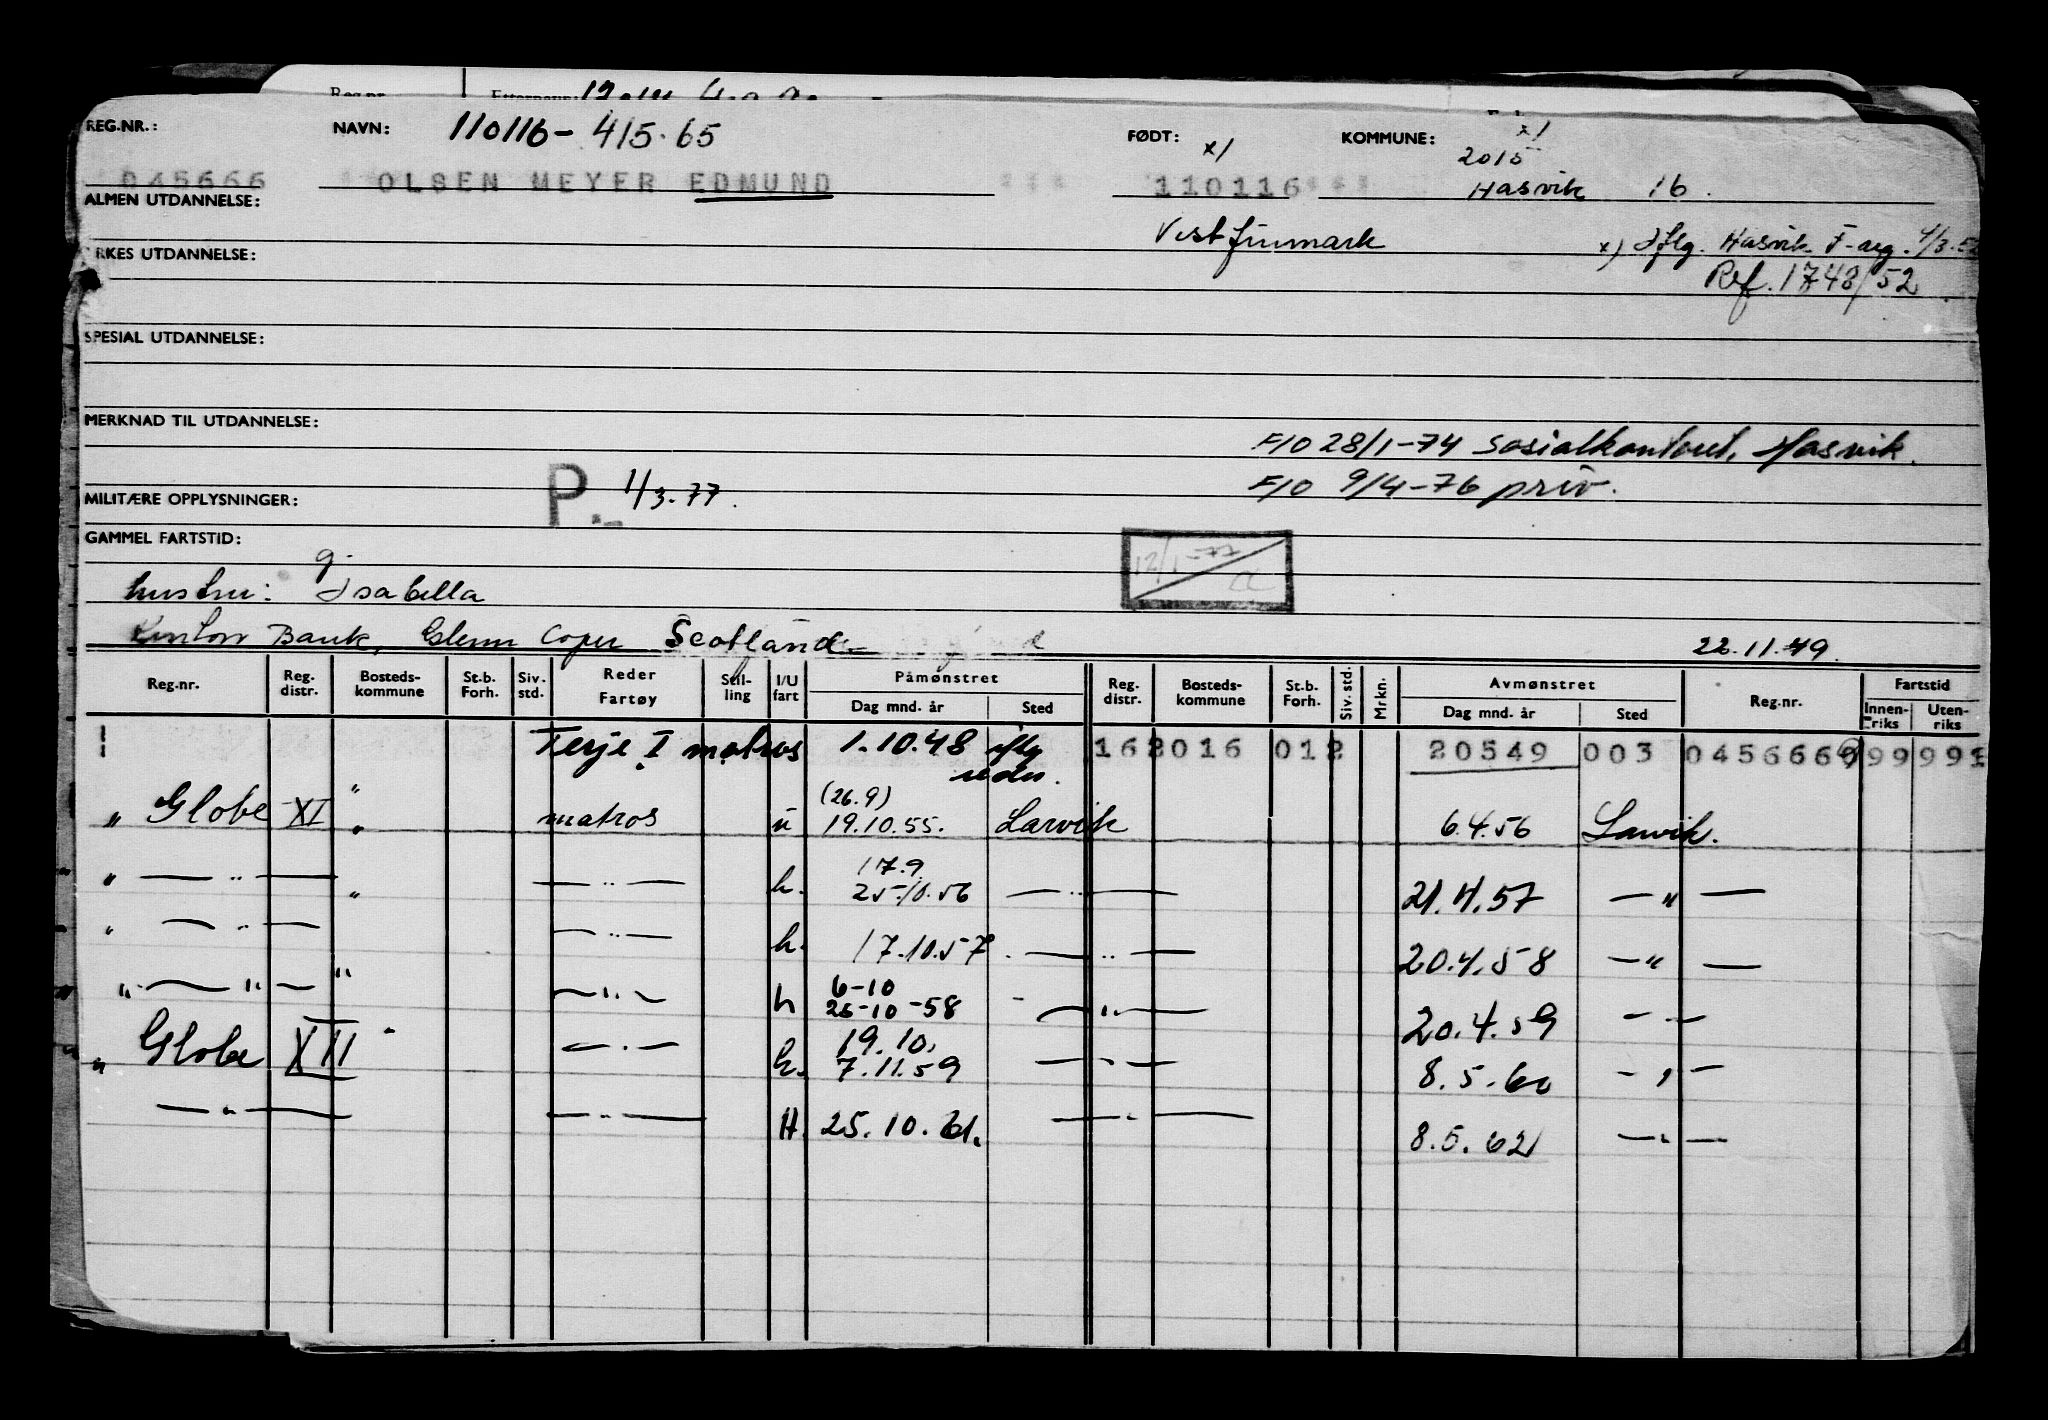 Reg.nr. Etternavn:
REG.NR.: NAVN: 110116- 415.65 FØDT: x) KOMMUNE: x) 2015
045666 OLSEN MEYER EDMUND *** 110116*** Hasvik 16.
ALMEN UTDANNELSE:
Vest Finnmark x) Iflg. Hasvik F-arg.
YRKES UTDANNELSE:
Ref. 1748/52
SPESIAL UTDANNELSE:
MERKNAD TIL UTDANNELSE:
F/O 28/1-74 Sosialkontoret, Hasvik.
P. 1/3.77. F/O 9/4-76 priv.
MILITÆRE OPPLYSNINGER:
GAMMEL FARTSTID: 12/1-77
g.
hustru: Isabella
Bank, Glenn Coper Scotland 22.11.49.
Reg.nr. Reg. distr. Bosteds-kommune St.b. Forh. Siv. std. Reder Fartøy Stil-ling I/U fart Påmønstret Dag mnd. år Sted Reg. distr. Bosteds-kommune St.b. Forh. Siv. std. Mrkn. Avmønstret Dag mnd. år Sted Reg.nr. Fartstid Innen-riks Uten-riks
Terje I matros 1.10.48 iflg reder. 162016 012 20549 003 045666 99 999
" Globe XI " matros u (26.9) 19.10.55. Larvik 6.4.56 Larvik.
" — " — " — " — h. 17.9 25.10.56 — " — 21.4.57 — " —
" — " — — " — h. 17.10.57 — " — 20.4.58 — " —
" — " — " — " — h 6-10 25-10-58 — " — 20.4.59 — " —
" Globe XII " — " — h. 19.10. 7.11.59 — " — 8.5.60 — " —
— " — — " — H. 25.10.61. — " — 8.5.62 — " —